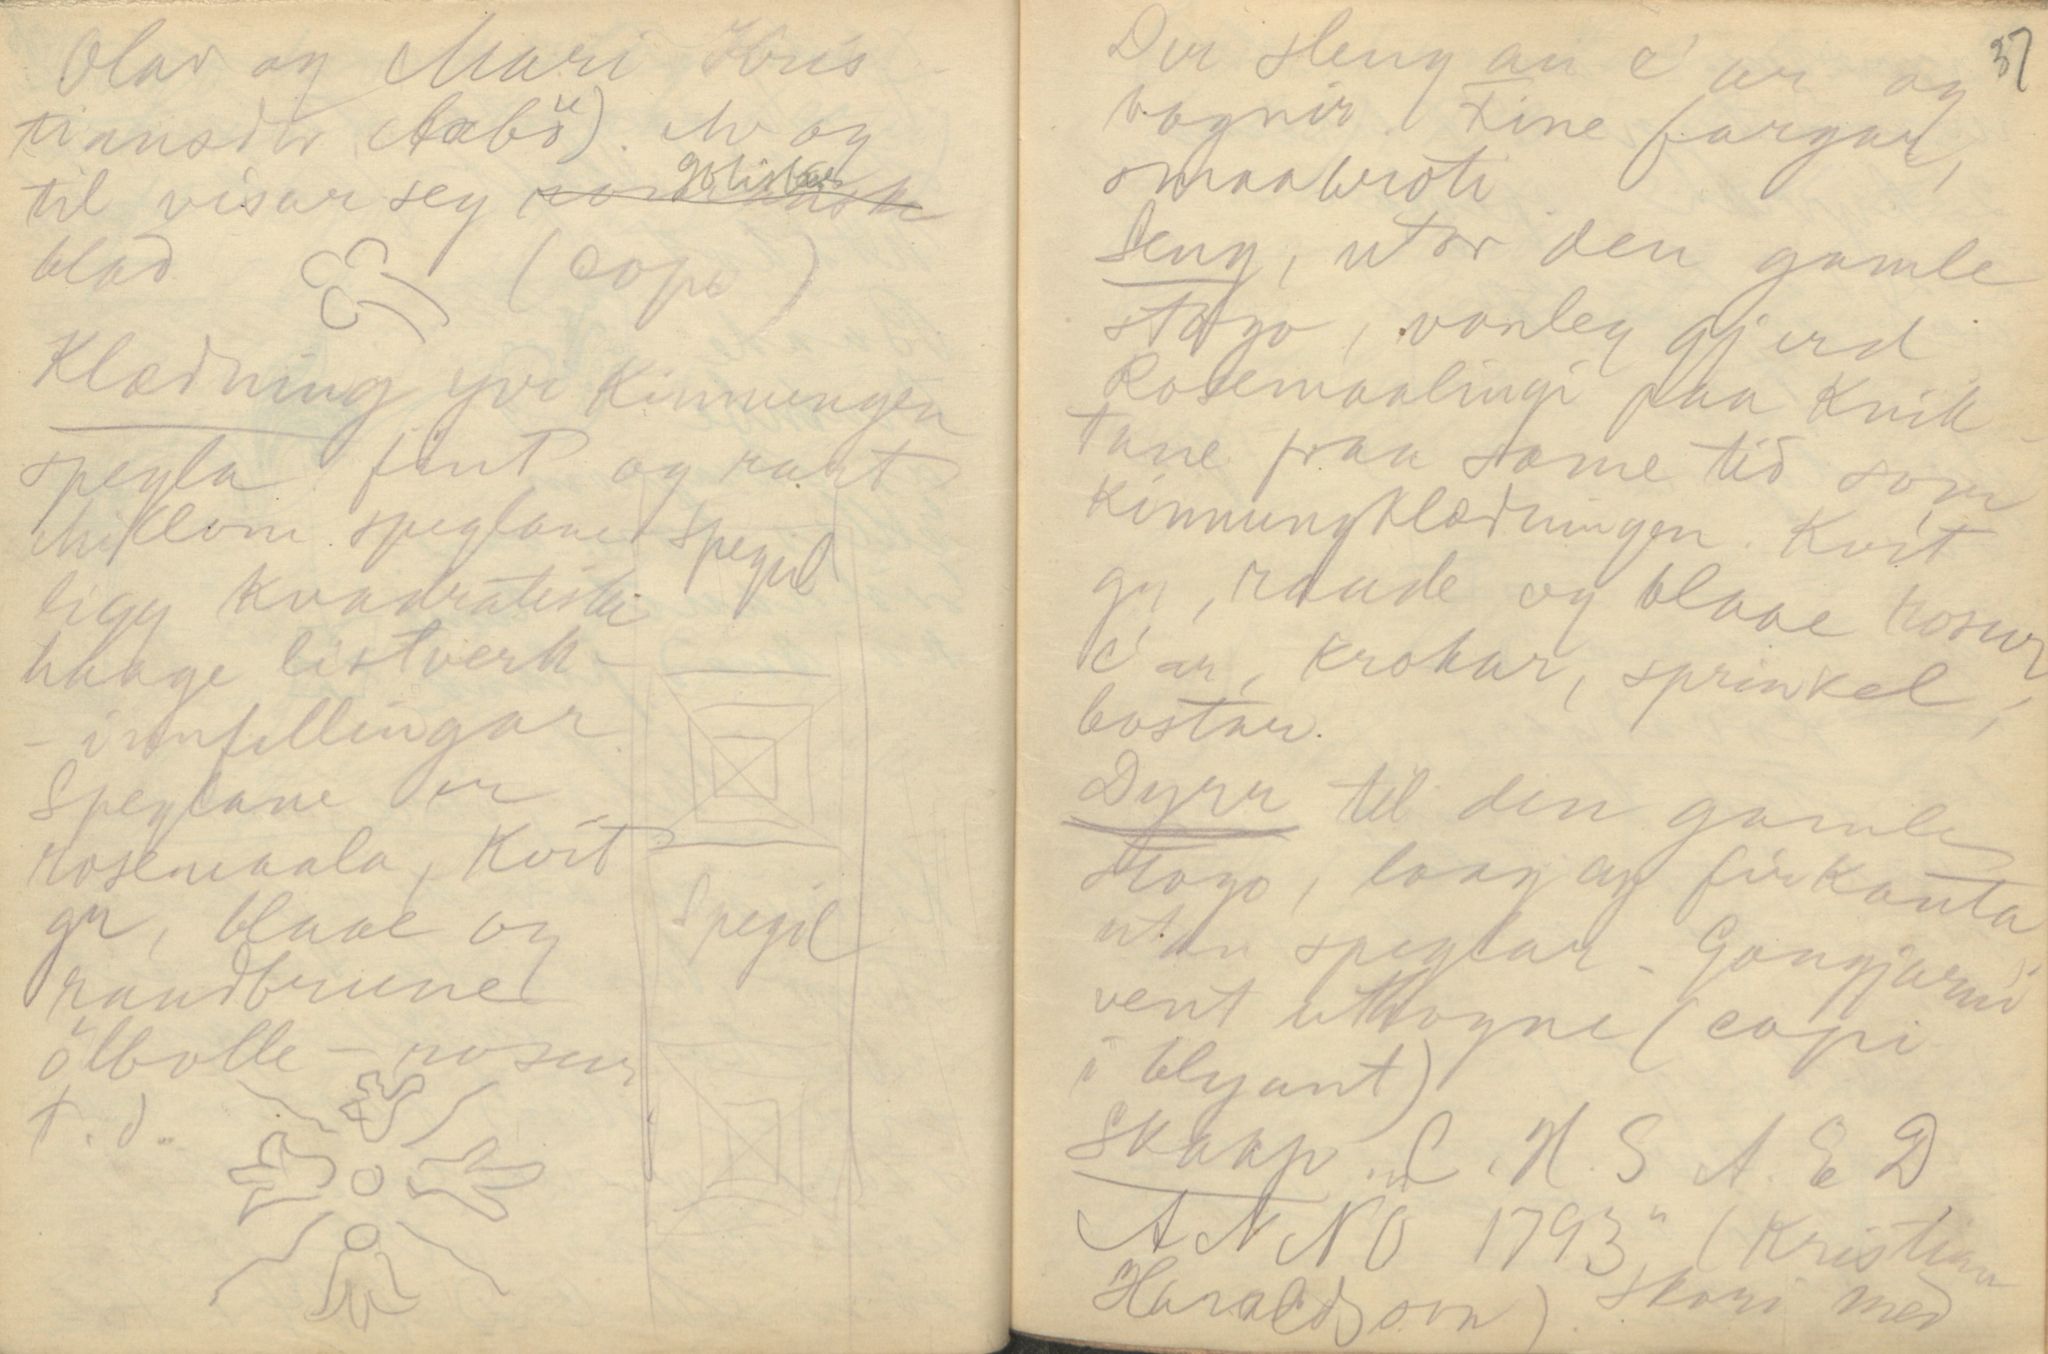 Olav og Mari Kris-
tiansdtr Aabö). Av og
til visar seg gotiske
blad (copi)
Klædning yvi Kinnungen
spegla fint og raut
Millom speglane
ligg kvadratiske
haage listverk-
- innfellingar
Speglane er
rosemaala, Kvit
gr, blaae og
raudbrune
ölbolle-rosur
t. d.
Spegel
Spegil
37
Der sleng an C ar og
bognir. Fine fargar,
smaabroti
Seng, utor den gamle
stogo, vanleg gjerd
Rosemaalingi paa Kvik-
tane fraa same tid som
Kinnungklædningen. Kvit
gr, raude og blaae rosur,
C ar, krokar, sprinkel,
bostar.
Dyrr til den gamle
stogo, laag og firkanta
utan speglar. Gangjarni
vent uthogne (copi
i blyant)
Skaap "C. H. S A. E D
ANNO 1793" (Kristian
Haraldson). Skori med